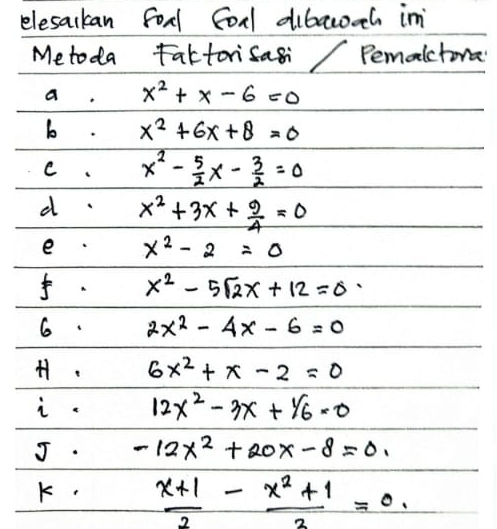 elesaikan Soal Soal dibawah ini
Metoda Faktorisasi / Pemaktora
a . x² + x - 6 = 0
b . x² + 6x + 8 = 0
c . x² - 5/2 x - 3/2 = 0
d . x² + 3x + 9/4 = 0
e . x² - 2 = 0
f . x² - 5√2x + 12 = 0 .
G . 2x² - 4x - 6 = 0
H . 6x² + x - 2 = 0
i . 12x² - 3x + 1/6 = 0
J . -12x² + 20x - 8 = 0 .
K . (x+1)/2 - (x² + 1)/3 = 0 .